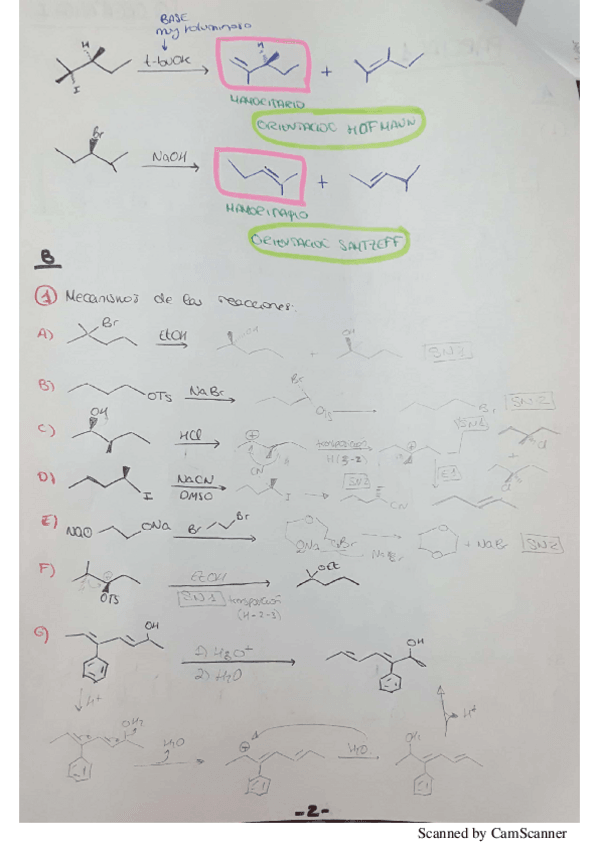 BASE
muy voluminosa
H
H
I
t-buOK
+
MAYORITARIO
ORIENTACIÓN HOFMANN
Br
NaOH
+
MAYORITARIO
ORIENTACIÓN SAYTZEFF
B
1 Mecanismos de las reacciones:
A) Br EtOH OH + OH SN1
B) OTS NaBr Br OTS Br SN2
C) OH HCl transposición H(3-2) SN1 Cl
E1 + Cl
D) I NaCN DMSO I SN2 CN
E) NaO ONa Br Br ONa Br NaBr + NaBr SN2
F) OTS EtOH OEt
SN1 transposición
(H-2-1)
G) OH 1) H3O+ OH
2) H2O
H+ H+
OH2 H2O H2O
-2-
Scanned by CamScanner